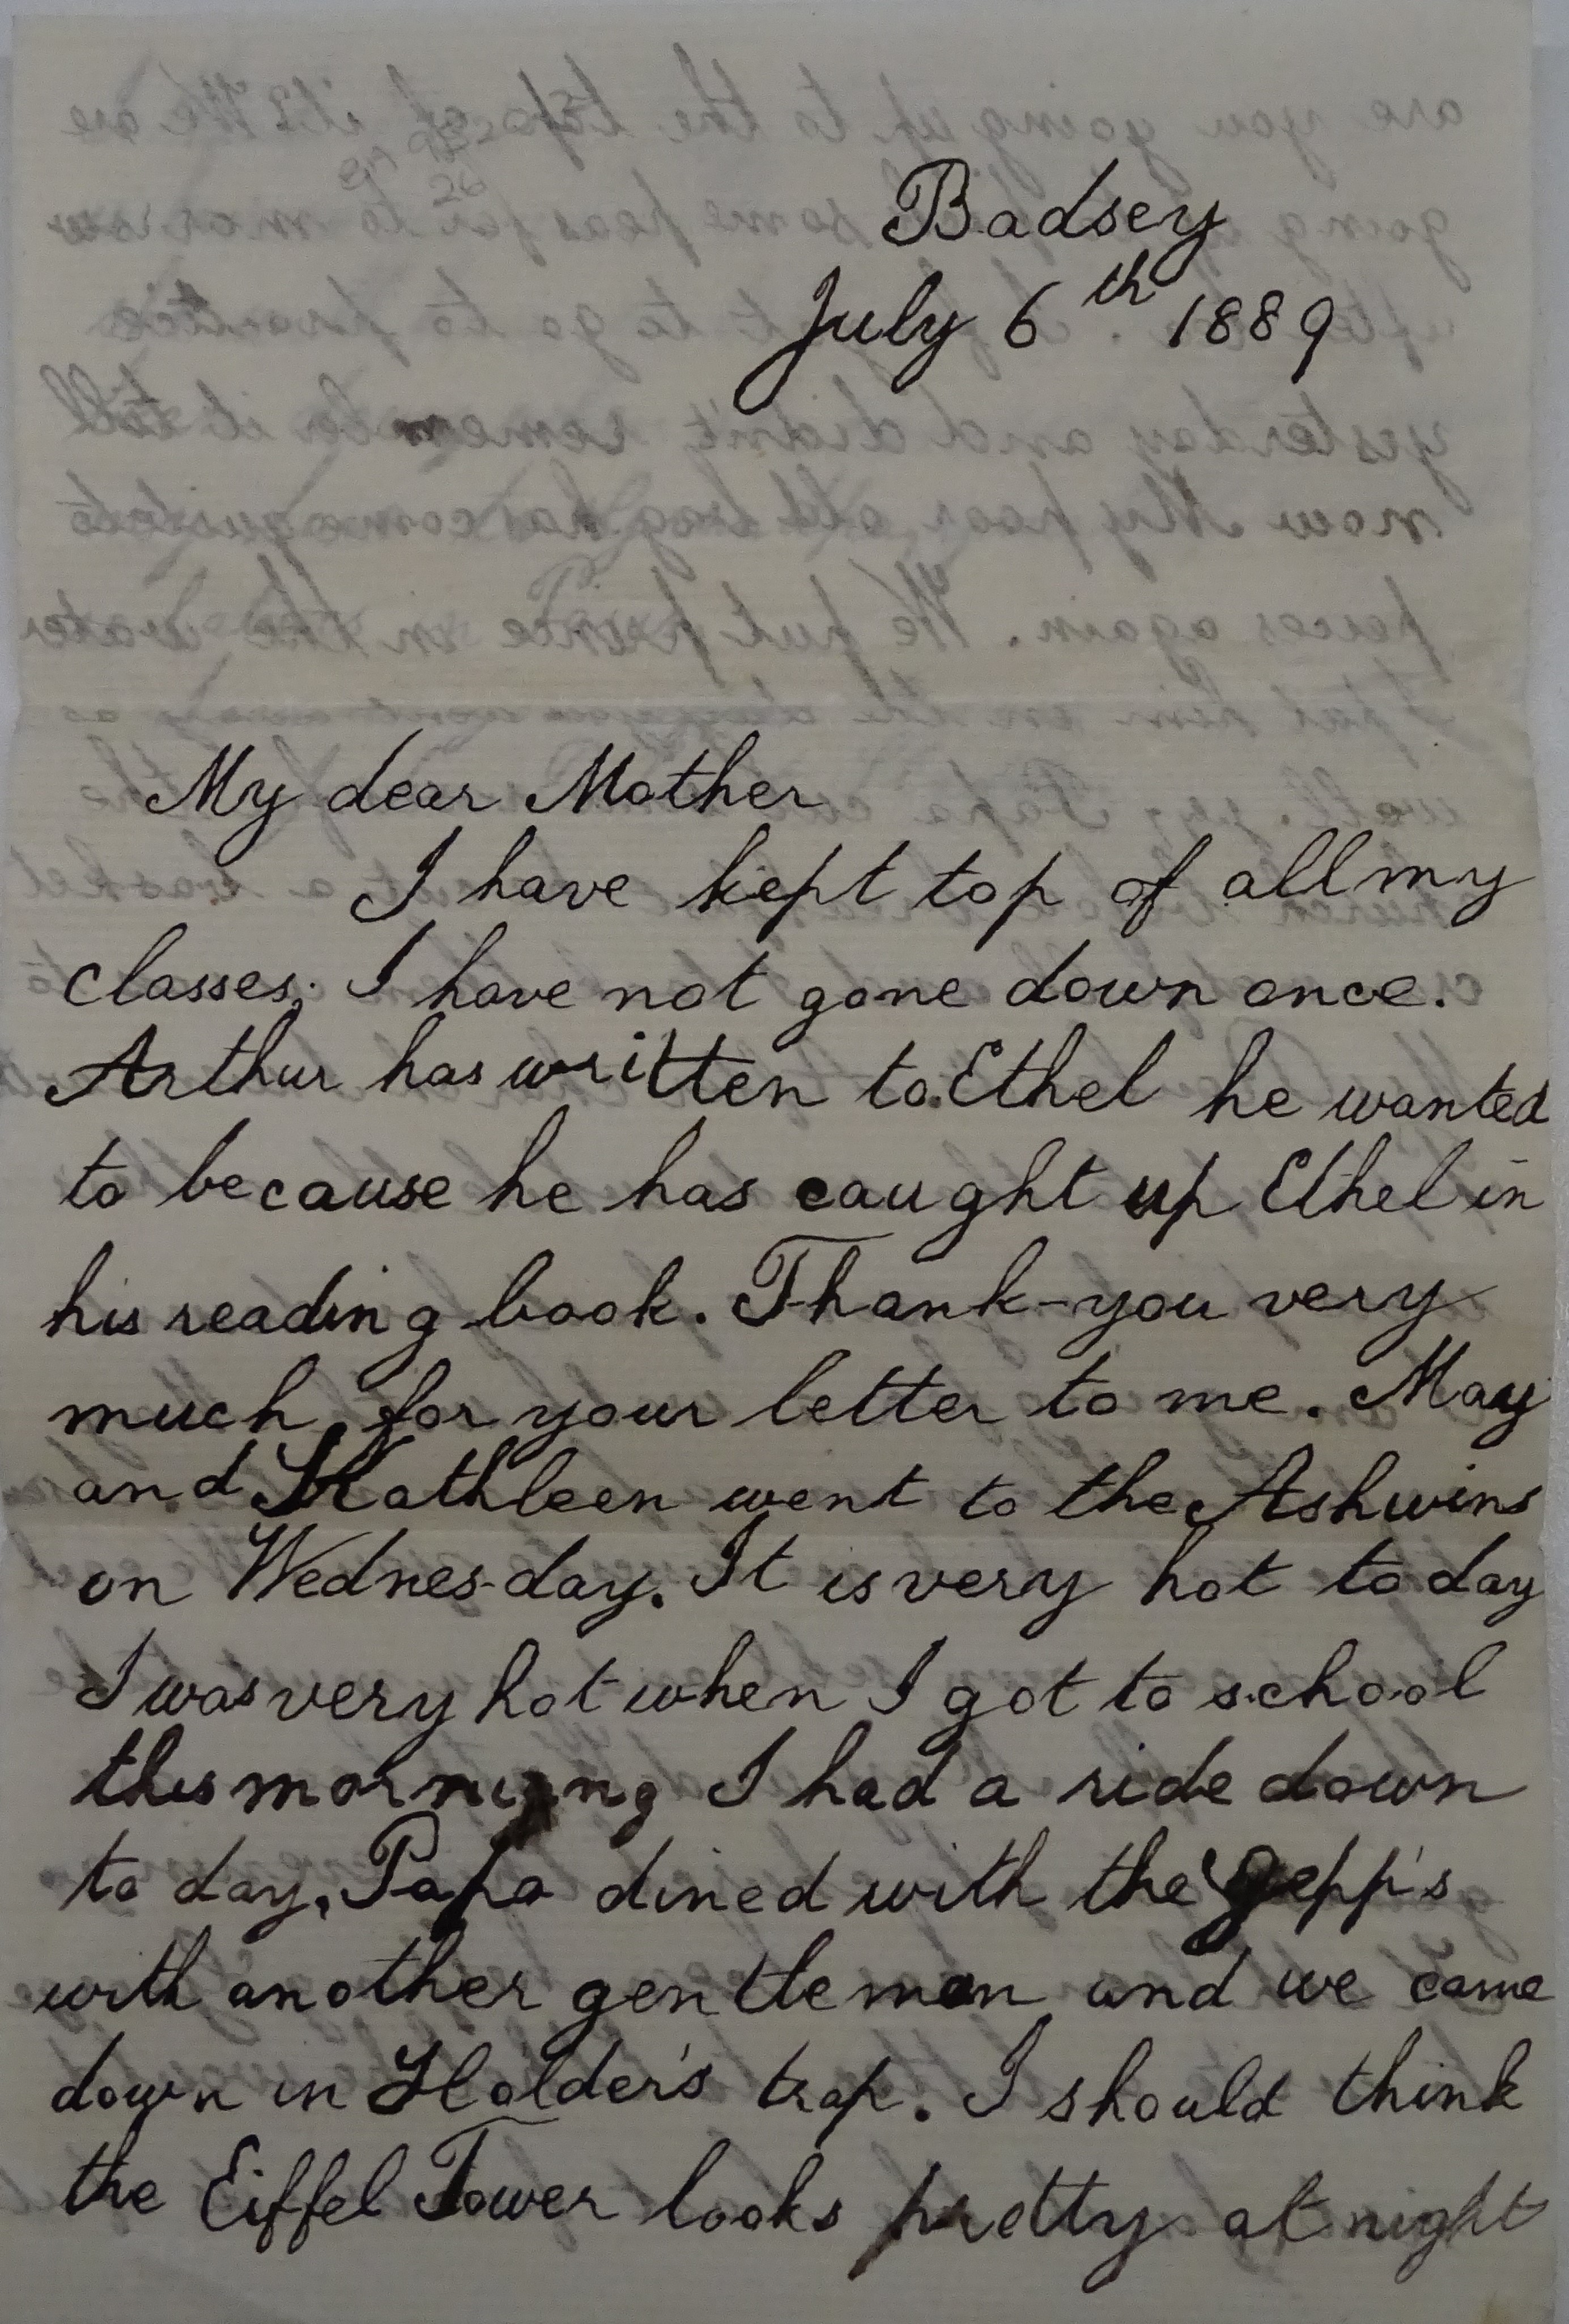 Badsey
July 6th 1889
My dear Mother
I have kept top of all my
classes; I have not gone down once.
Arthur has written to Ethel he wanted
to because he has caught up Ethel in
his reading book. Thank-you very
much for your letter to me. May
and Kathleen went to the Ashwins
on Wednes-day. It is very hot to day
I was very hot when I got to school
this morning I had a ride down
to day, Papa dined with the Gepp's
with another gentleman and we came
down in Holder's trap. I should think
the Eiffel Tower looks pretty at night